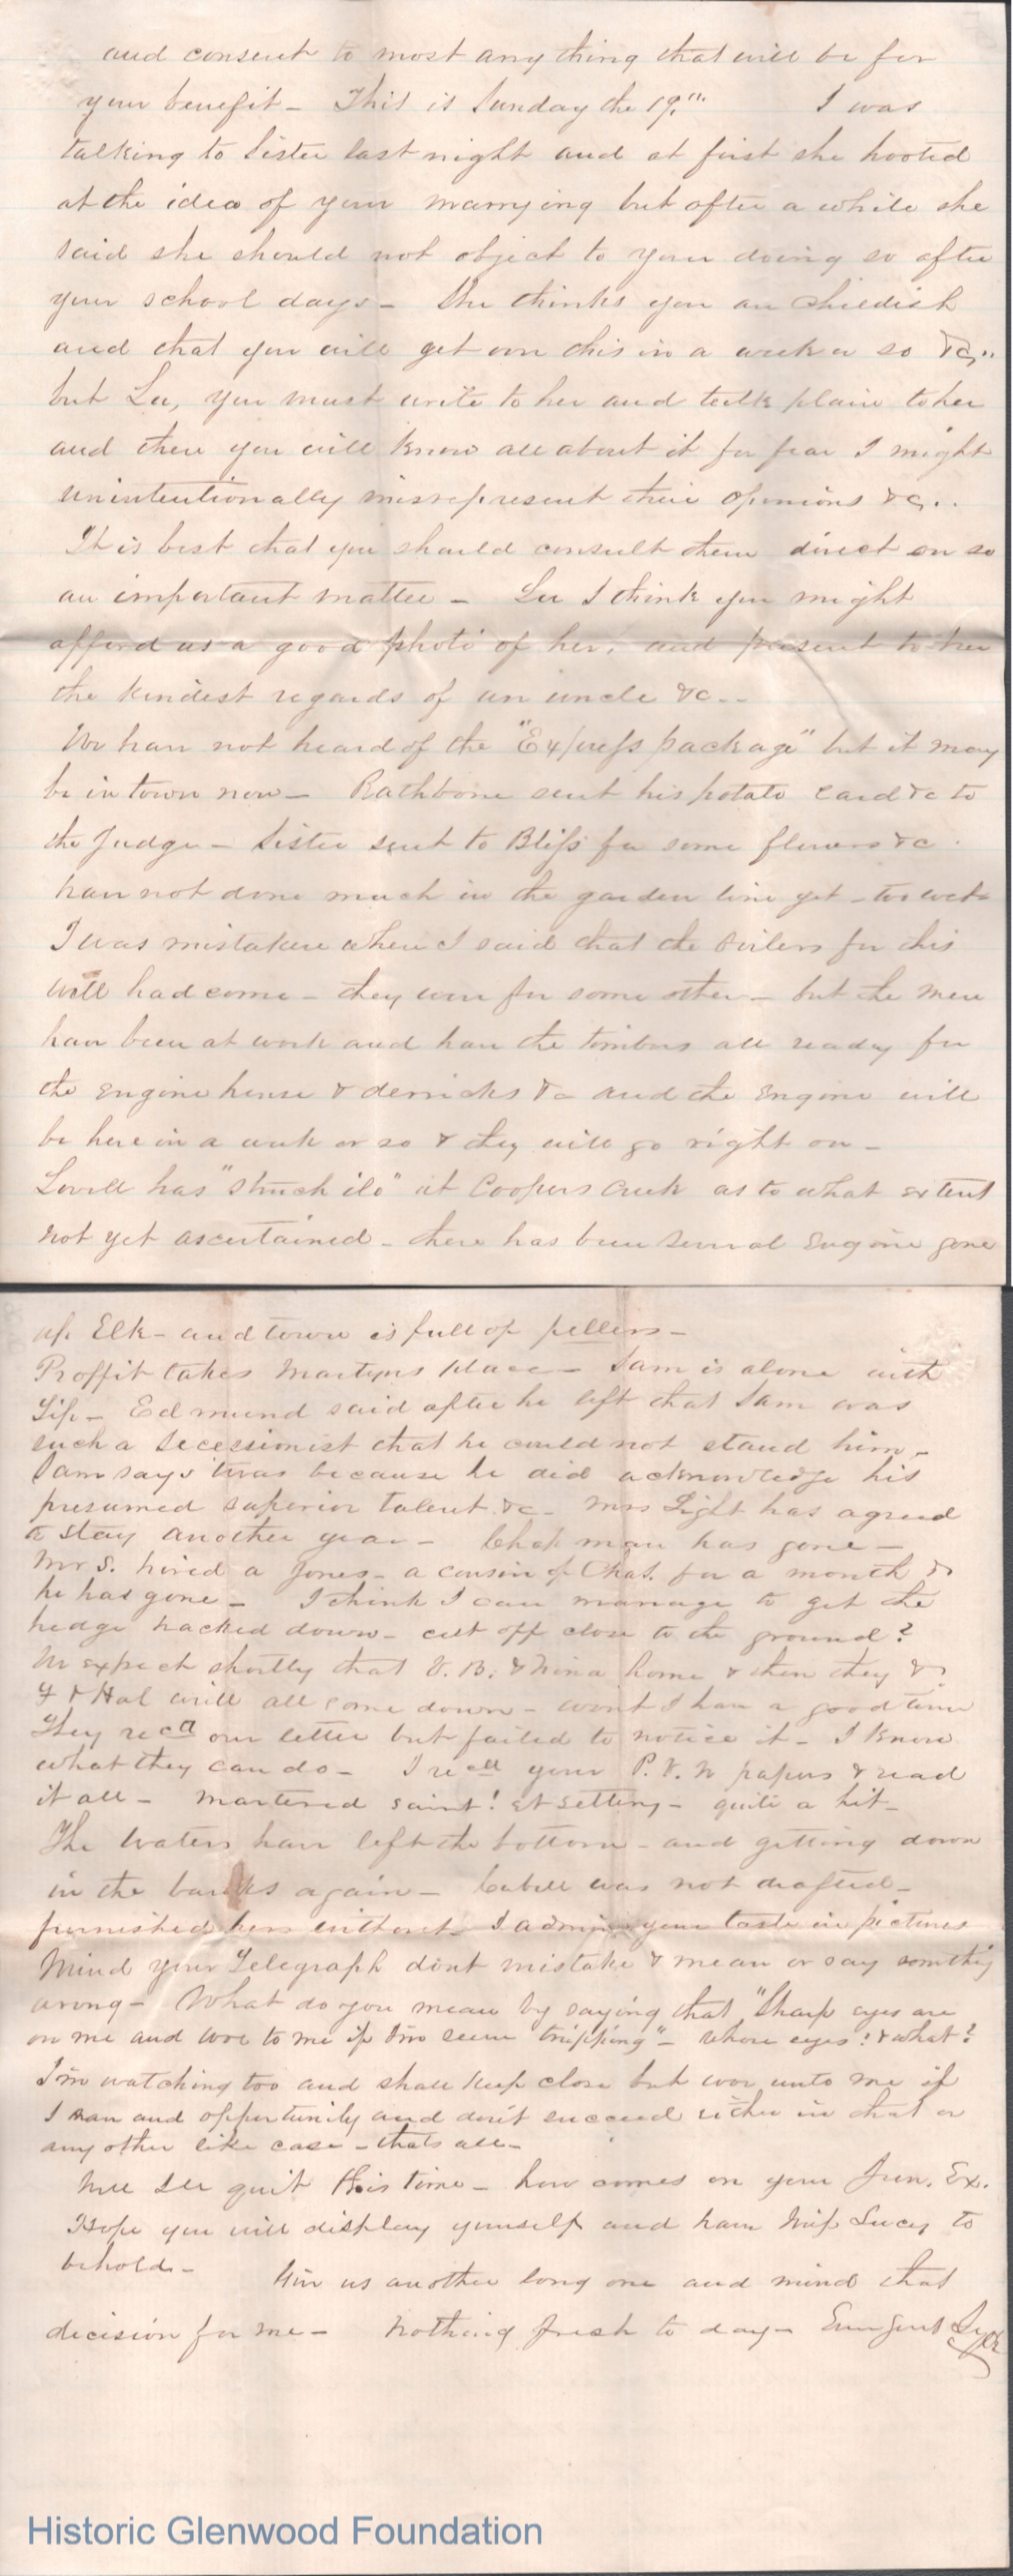 and consent to most any thing that will be for
your benefit - This is Sunday the 19th I was
talking to Sister last night and at first she hooted
at the idea of your marrying but after a while she
said she should not object to your doing so after
your school days - She thinks you are childish
and that you will get over this in a week or so &c,,
but Lu, you must write to her and talk plain to her
and then you will know all about it for fear I might
unintentionally misrepresent their opinions &c..
It is best that you should consult them direct on so
an important matter - Lu I think you might
afford us a good photo of her, and present to her
the kindest regards of an uncle &c..
We have not heard of the "Express package" but it may
be in town now - Rathbone sent his potato card &c to
the Judge - Sister sent to Bliss for some flowers &c.
have not done much in the garden line yet - too wet
I was mistaken when I said that the boilers for this
well had come - they were for some other - but the men
have been at work and have the timbers all ready for
the engine house & derricks &c and the Engine will
be here in a week or so & they will go right on -
Lovell has "struck ile" at Coopers Creek as to what extent
not yet ascertained - there has been several Engine gone
up Elk - and town is full of fellers -
Proffit takes Martyns place - Sam is alone with
Tip - Edmund said after he left that Sam was
such a Secessionist that he could not stand him -
Sam says 'twas because he did acknowledge his
presumed superior talent &c - Mrs Light has agreed
to stay another year - has gone -
Mr S. hired a Jones - a cousin of Chas. for a month &
he has gone - I think I can manage to get the
hedge hacked down - cut off close to the ground?
We expect shortly that V. B. & Nina home & then they &
& Hal will all come down - wont I have a good time
They recd our letter but failed to notice it - I know
what they can do - I recd your P. V. N papers & read
it all - Martered saint! quite a hit -
The Waters have left the bottom - and getting down
in the banks again - Cabell was not drafted -
furnished I admire your taste in pictures
Mind your Telegraph dont mistake & mean or say somthing
wrong - What do you mean by saying that "Sharp eyes are
on me and woe to me if I'm seen "tripping" - whose eyes! & what?
I'm watching too and shall keep close but woe unto me if
I an opportunity and don't succeed either in that or
any other like case - thats all -
Well Ill quit this time - how comes on your Jun. Ex.
Hope you will display yourself and have Miss Lucy to
behold - Give us another long one and mind that
decision for me - Nothing fresh to day -
Historic Glenwood Foundation